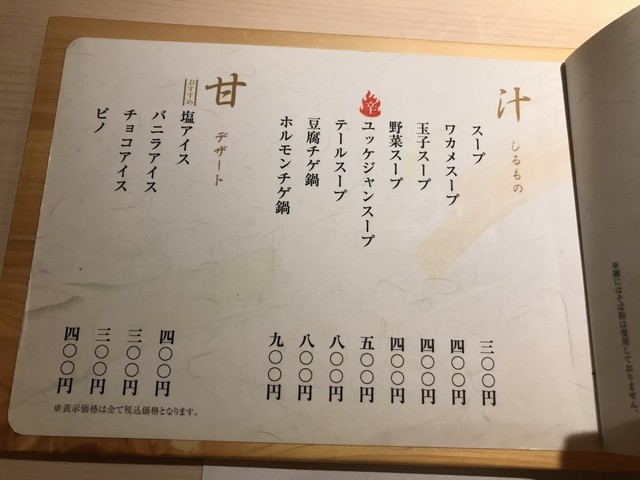 汁
しるもの
スープ 三〇〇円
ワカメスープ 四〇〇円
玉子スープ 四〇〇円
野菜スープ 四〇〇円
辛
ユッケジャンスープ 五〇〇円
テールスープ 八〇〇円
豆腐チゲ鍋 八〇〇円
ホルモンチゲ鍋 九〇〇円
甘
デザート
おすすめ
塩アイス 四〇〇円
バニラアイス 三〇〇円
チョコアイス 三〇〇円
ピノ 四〇〇円
※表示価格は全て税込価格となります。
※麺にはそば粉は使用しておりません。